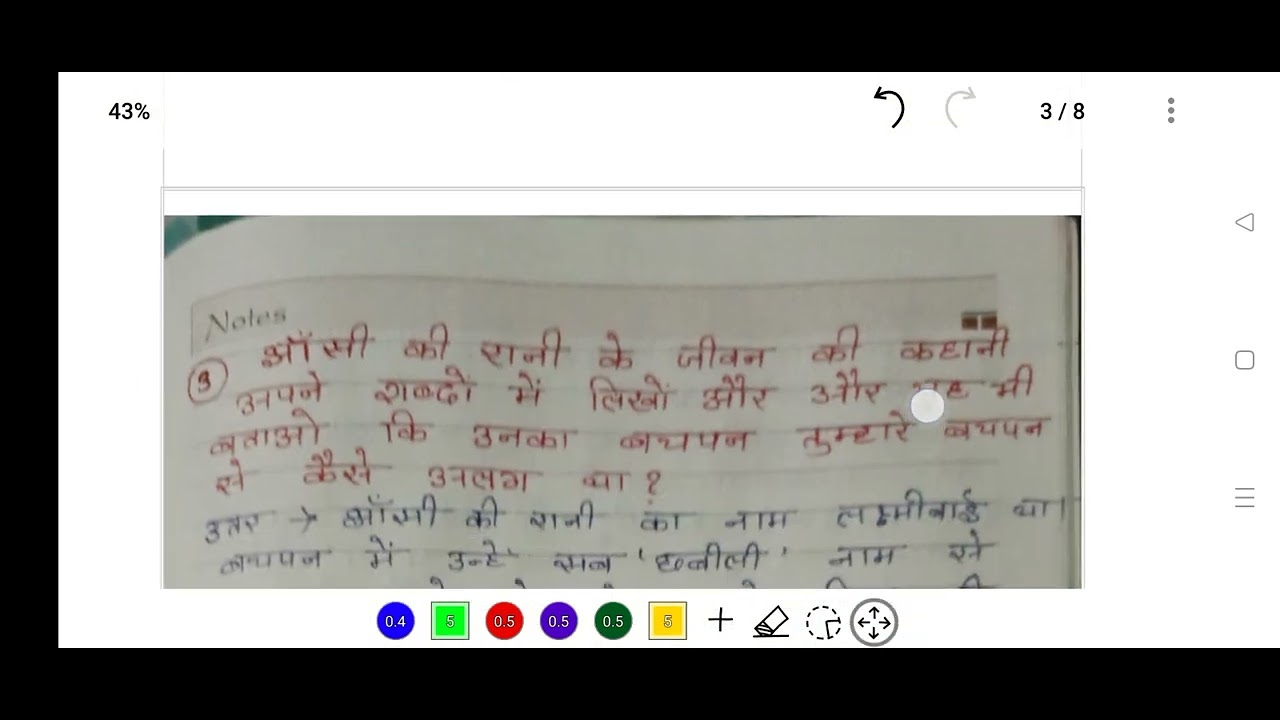 43%
3 / 8
Notes
③ झाँसी की रानी के जीवन की कहानी
अपने शब्दों में लिखों और और यह भी
बताओ कि उनका बचपन तुम्हारे बचपन
से कैसे अलग था?
उतर → झाँसी की रानी का नाम लक्ष्मीबाई था।
बचपन में उन्हे सब 'छबीली' नाम से
0.4 5 0.5 0.5 0.5 5